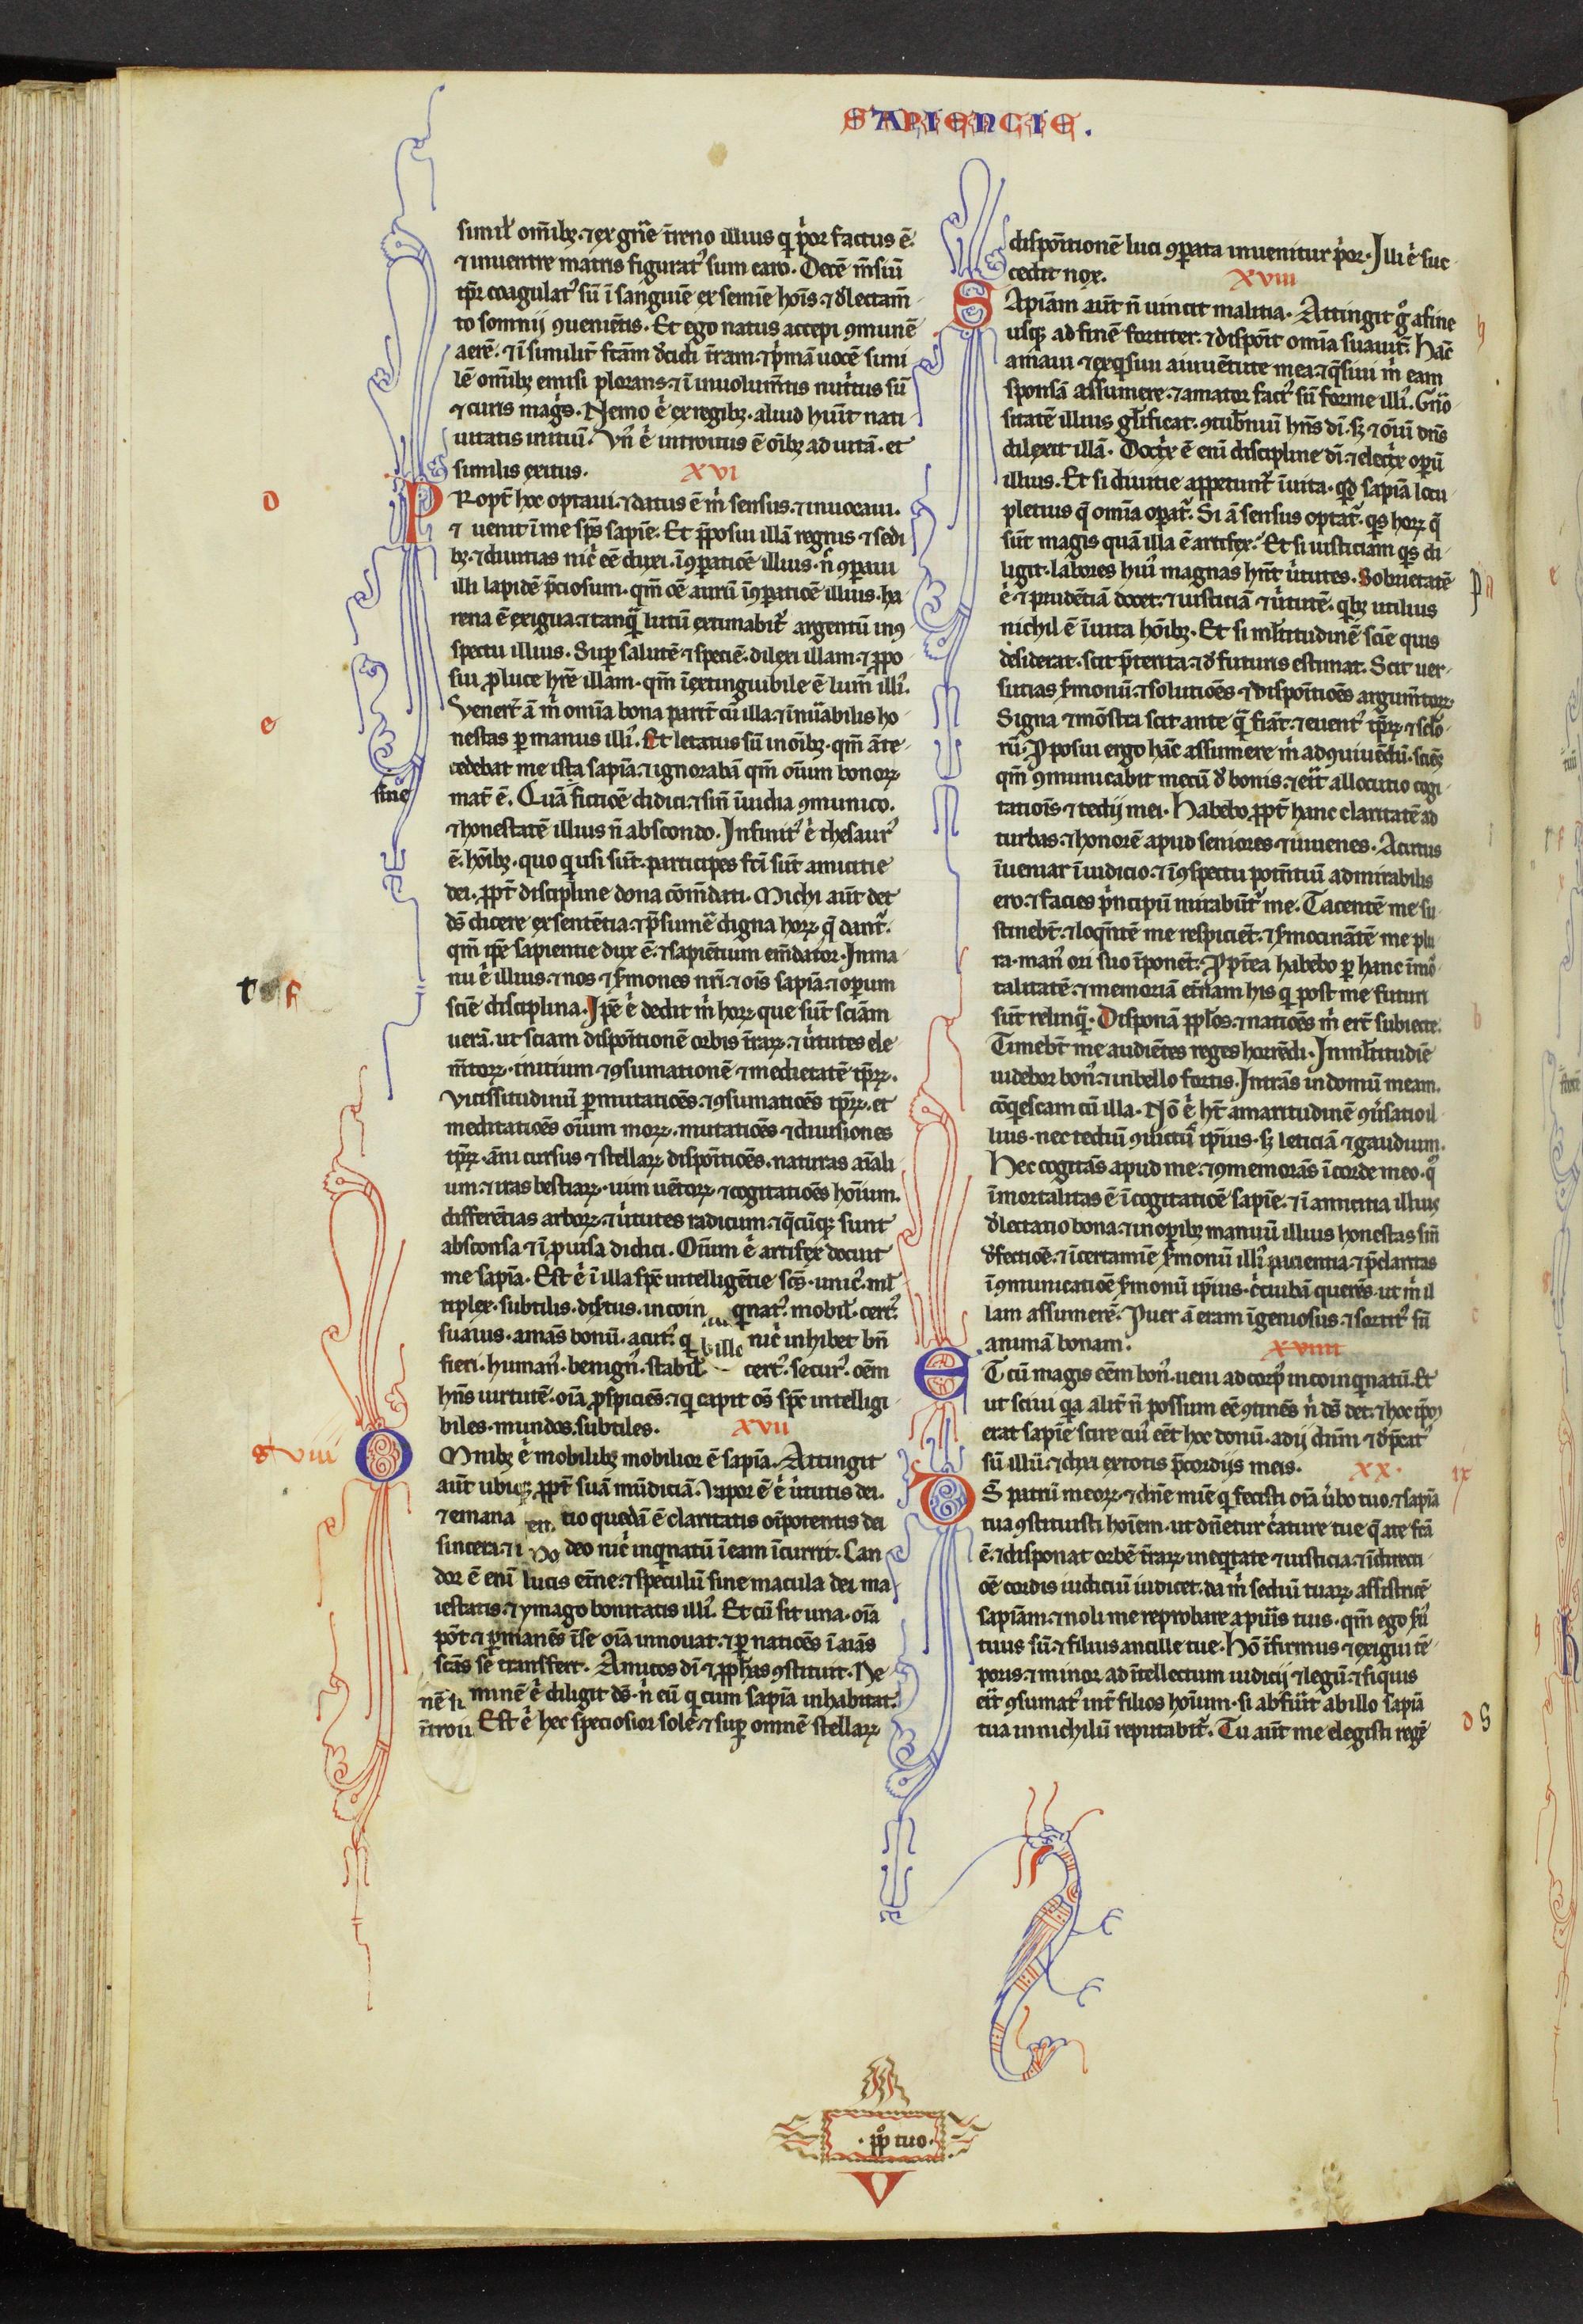 SAPIENCIE.
simił om̄ibꝫ. ⁊ ex gn̄e t̄reno illius q̇ p̓or factus ē.
⁊ in uentre matris figurat᷒ sum caro. Decē m̄siū
tp̄r coagulat᷒ sū ī sanguīe ex semīe hoīs. ⁊ d̓lectam̄
to somnij ꝯueniētis. Et ego natus accepi ꝯmunē
aerē. ⁊ ī similit̓ fc̄am d̓cidi t̄ram. ⁊ p̓mā uocē simi
lē om̄ibꝫ emisi plorans. ⁊ ī inuolum̄tis nut̓tus sū
⁊ curis mag̓s. Nemo .n. ex regibꝫ. aliud hūit nati
uitatis initiū. Vn᷒ .n. introitus ē oībꝫ ad uitā. et
similis exitus. XVI
PRopt̓ hoc optaui. ⁊ datus ē m̓ sensus. ⁊ inuocaui.
⁊ uenit ī me sp̄s sapīe. Et p̄posui illā regnis ⁊ sedi
bꝫ. ⁊ diuitias nic̓ eē duxi. ī ꝯꝑatiōe illius. n̄ ꝯꝑaui
illi lapidē p̄ciosum. qm̄ oē aurū ī ꝯꝑatiōe illius. ha
rena ē exigua. ⁊ tanq̄ lutū extimabit᷒ argentū in ꝯ
spectu illius. Suꝑ salutē ⁊ speciē. dilexi illam. ⁊ ꝓpo
sui ꝓ luce hr̄e illam. qm̄ īextinguibile ē lum̄ illi᷒.
Venert̄ ā m̓ omīa bona parit̓ cū illa. ⁊ īnūabilis ho
nestas ꝑ manus illi᷒. Et letatus sū in oībꝫ. qm̄ āte
cedebat me ista sapīa. ⁊ ignorabā qm̄ oīum bonoꝝ
mat̓ ē. Quā fictiōe didici. ⁊ sin̄ īuidia ꝯmunico.
sine
⁊ honestatē illius n̄ abscondo. Infinit᷒ .n. thesaur᷒
ē. hōibꝫ. quo q̇ usi sūt. participes fc̄i sūt amicitie
dei. ꝓpt̓ discipline dona cōm̄dati. Michi aūt det
ds̄ dicere ex sententia. ⁊ p̄sumē digna hoꝝ q̄ dant᷒.
qm̄ ip̄e sapientie dux ē. ⁊ sapiētium em̄dator. In ma
nu .n. illius. ⁊ nos ⁊ s̓mones nr̄i. ⁊ oīs sapīa. ⁊ oꝑum
scīe disciplina. Ip̄e .n. dedit m̓ hoꝝ que sūt sciām
uerā. ut sciam dispoītionē orbis t̄raꝝ. ⁊ u̓tutes ele
m̄toꝝ. initium ⁊ ꝯsumationē ⁊ medietatē tp̄ꝝ.
Vicissitudinū ꝑmutatiōes. ⁊ ꝯsumatiōes tp̄ꝝ. et
meditatiōes oīum moꝝ. mutatiōes ⁊ diuisiones
tp̄ꝝ. āni cursus ⁊ stellaꝝ dispoītiōes. naturas aīali
um. ⁊ iras bestiaꝝ. uim uētoꝝ ⁊ cogitatiōes hoīum.
differētias arboꝝ. ⁊ u̓tutes radicum. ⁊ q̄cūqꝫ sunt
absconsa ⁊ īꝓuisa didici. Oīum .n. artifex docuit
me sapīa. Est .n. ī illa sp̄c intelligētie scs̄. unic᷒. ml̓
tiplex. subtilis. dis̓tus. incoinq̇nat᷒. mobil̓. cert᷒.
suauis. amās bonū. acut᷒. q̇ nic̓ inhibet bn̄
fieri. human᷒. benign᷒. stabil̓. cert᷒. secur᷒. oēm
hn̄s uirtutē. oīa ꝓspiciēs. ⁊ q̇ capit oēs sp̄c intelligi
biles. mundos. subtiles. XVII
OMnibꝫ .n. mobilibꝫ mobilior ē sapīa. Attingit
aūt ubiqꝫ ꝓpt̓ suā mūdiciā. Vapor ē .n. u̓tutis dei.
⁊ emanatio quedā ē claritatis oīpotentis dei
sinceri. ⁊ ideo nic̓ inq̇natū ī eam īcurrit. Can
dor ē enī lucis et̄ne. ⁊ speculū sine macula dei ma
iestatis. ⁊ ymago bonitatis illi᷒. Et cū sit una. oīa
pōt. ⁊ ꝑmanēs ī se oīa innouat. ⁊ ꝑ natiōes ī aīas
scās se transfert. Amicos dī ⁊ ꝓph̄as ꝯstituit. Ne
minē .n. diligit ds̄. n̓ eū q̇ cum sapīa inhabitat.
Est .n. hec speciosior sole. ⁊ suꝑ omnē stellaꝝ
dispoītionē luci ꝯꝑata inuenitur p̓or. Illi .n. suc
cedit nox. XVIII
SApīam aūt n̄ uincit malitia. Attingit g̊ a fine
usqꝫ ad finē fortiter. ⁊ dispoīt omīa suauit̓. Hāc
amaui ⁊ exq̇siui a iuuētute mea. ⁊ q̄siui m̓ eam
sponsā assumere. ⁊ amator fact᷒ sū forme illi᷒. Gn̄o
sitatē illius gl̓ificat. ꝯtub̓niū hn̄s dī. sꝫ ⁊ oīuī dn̄s
dilexit illā. Doctx̄ ē enī discipline dī. ⁊ electx̄ oꝑū
illius. Et si diuitie appetunt᷒ ī uita. qd̓ sapīa locu
pletius q̄ omīa oꝑat᷒. Si ā sensus optat᷒. q̇s hoꝝ q̄
sūt magis quā illa ē artifex. Et si iusticiam q̇s di
ligit. labores hui᷒ magnas hn̄t u̓tutes. Sobrietatē
.n. ⁊ prudētiā docet. ⁊ iusticiā ⁊ u̓tutē. q̇bꝫ utilius
nichil ē ī uita hōibꝫ. Et si ml̓titudinē scīe quis
desiderat. scit p̄terita. ⁊ d̓ futuris estimat. Scit uer
sutias s̓monū. ⁊ solutiōes ⁊ dispoītiōes argum̄toꝝ.
Signa ⁊ mōstra scit ante q̄ fiāt. ⁊ euent᷒ tp̄ꝝ. ⁊ sclo
rū. Ꝓposui ergo hāc assumere m̓ ad ꝯuiuēdū. sciēs
qm̄ ꝯmunicabit mecū d̓ bonis. ⁊ eīt allocutio cogi
tatiōis ⁊ tedij mei. Habebo ꝓpt̓ hanc claritatē ad
turbas. ⁊ honorē apud seniores ⁊ iuuenes. Acutus
īueniar ī iudicio. ⁊ ī ꝯspectu potm̄tiū admirabilis
ero. ⁊ facies p̓ncipū mirabūt᷒ me. Tacentē me su
stinebt̄. ⁊ loq̄ntē me respiciēt. ⁊ s̓mocinātē me plu
ra. man᷒ ori suo īponēt. Ꝓpt̓ea habebo ꝑ hanc īmo
talitatē. ⁊ memoriā et̄nam his q̇ post me futuri
sūt relinq̄. Disponā ppl̓os. ⁊ natiōes m̓ ert̄ subiecte.
Timebt̄ me audiētes reges horrēdi. In ml̓titudīe
uidebor bon᷒. ⁊ in bello fortis. Intrās in domū meam.
cōq̇escam cū illa. Nō .n. ht̄ amaritudinē ꝯu̓satio il
lius. nec tediū ꝯuict᷒ ip̄ius. sꝫ leticiā ⁊ gaudium.
Hec cogitās apud me. ⁊ ꝯmemorās ī corde meo. q᷒
īmortalitas ē ī cogitatiōe sapīe. ⁊ ī amicitia illius
d̓lectatio bona. ⁊ in oꝑibꝫ manuū illius honestas sin̄
d̓fectiōe. ⁊ ī certamīe s̓monū illi᷒ sapientia. ⁊ p̄claritas
ī ꝯmunicatiōe s̓monū ip̄ius. c̓cuibā querēs. ut m̓ il
lam assumerē. Puer ā eram īgeniosus. ⁊ sortit᷒ sū
animā bonam. XVIIII
ET cū magis eēm bon᷒. ueni ad corp᷒ incoinq̇natū. Et
ut sciui qa alit̓ n̄ possum eē ꝯtinēs n̓ ds̄ det. ⁊ hoc ip̄m
erat sapīe scire cui᷒ eēt hoc donū. adij dn̄m ⁊ d̓p̄cat᷒
sū illū. ⁊ dixi ex totis p̄cordijs meis. XX.
DS patrū meoꝝ. ⁊ dn̄e mīe q̇ fecisti oīa u̓bo tuo. ⁊ sapīa
tua ꝯstituisti hoīem. ut dn̄etur c̓ature tue q̄ a te fc̄a
ē. ⁊ disponat orbē t̄raꝝ in eq̇tate ⁊ iusticia. ⁊ ī directi
oē cordis iudiciū iudicet. da m̓ sediū tuaꝝ assistricē
sapīam. ⁊ noli me reprobare a puīs tuis. qm̄ ego s̓u᷒
tuus sū. ⁊ filius ancille tue. Hō īfirmus ⁊ exigui tē
poris. ⁊ minor ad ītellectum iudicij ⁊ legū. ⁊ si quis
eīt ꝯsumat᷒ int̓ filios hoīum. si abfūit ab illo sapīa
tua in nichilū reputabit᷒. Tu aūt me elegisti regē
.ppł̊o tuo.